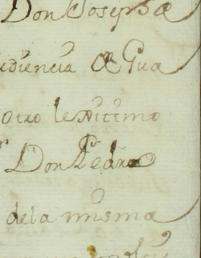 Don Joseph de
idiencia de Gua
otro lexitimo
Don Pedro
dela misma